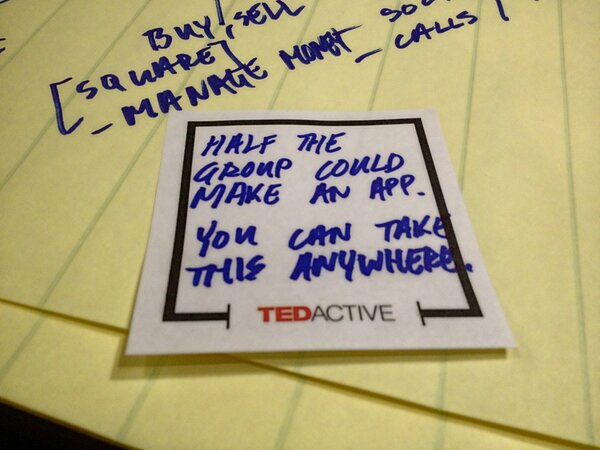 BUY, SELL
[SQUARE]
- MANAGE MONEY - CALLS
HALF THE
GROUP COULD
MAKE AN APP.
YOU CAN TAKE
THIS ANYWHERE.
TEDACTIVE